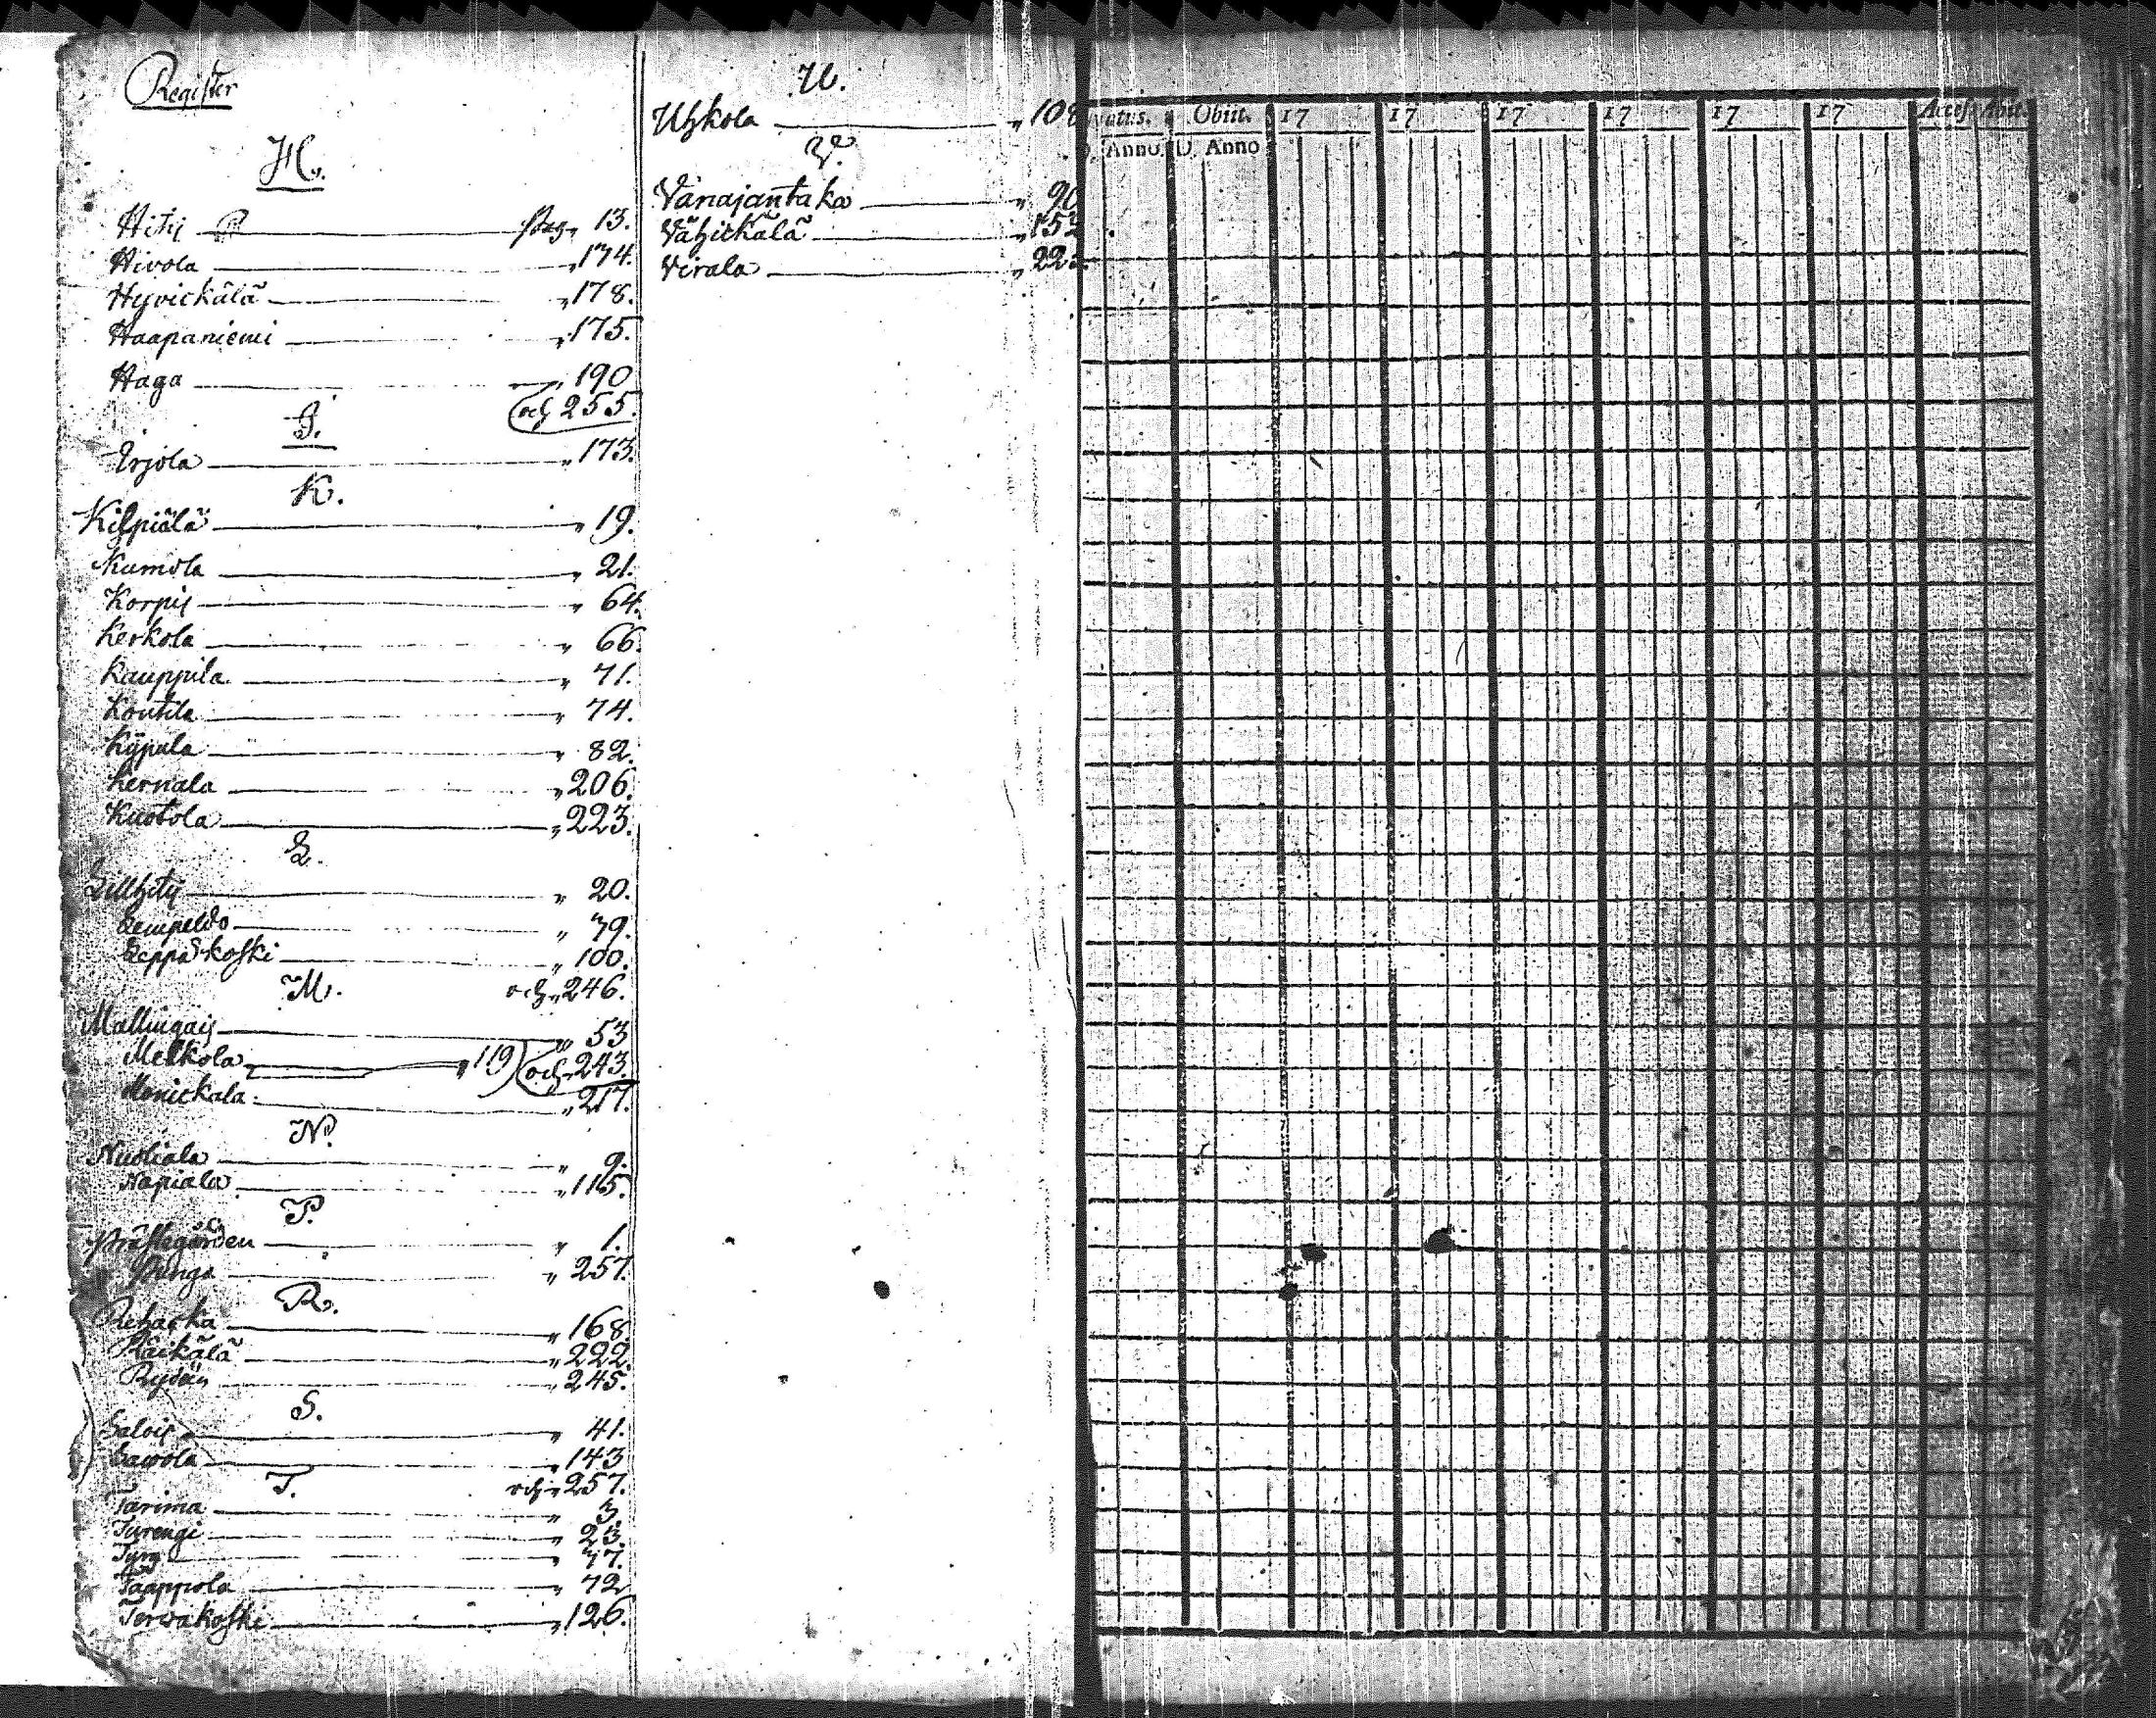 Register
H.
Hitij pag. 13.
Hivola " 174.
Hyvickälä " 178.
Haapaniemi " 175.
Haga " 190
och 255.
I.
Irjola " 173.
K.
Kilpiälä " 19.
Kumola " 21.
Korpij " 64.
Kerkola " 66.
Kauppila " 71.
Koutila " 74.
Kijpula " 82.
Kernala " 206.
Kuotola " 223.
L.
Lullhitij " 20.
Lempeldo " 79.
Leppäkoski " 100.
och " 246.
M.
Mallingaij " 53
Melkola " 119 och " 243.
Monickala " 217.
N.
Nuoliala " 9.
Napiala " 115.
P.
Prästegården " 1.
Punga " 257.
R.
Rehacka " 168
Räikälä " 222.
Rydén 245.
S.
Salois " 41.
Sawola " 143
och " 257.
T.
Tarima " 3.
Turengi " 23.
" 77.
Taappola " 72
Terwakoski " 126.
U.
Uhkola " 108
V.
Vanajantaka " 90
Vähickälä " 152
Virala " 22
natus. Obiit. 17 17 17 17 17 17 Access. Abiit.
D. Anno. D. Anno